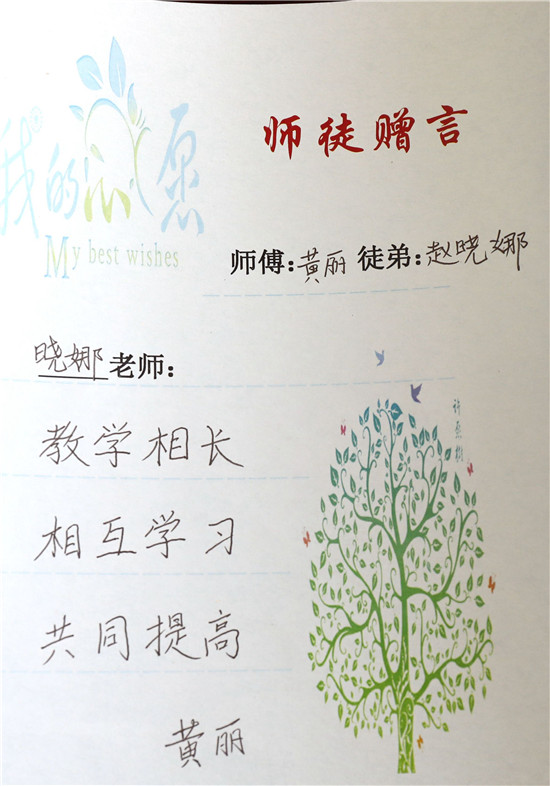 师徒赠言
我的心愿
My best wishes
师傅：黄丽 徒弟：赵晓娜
晓娜老师：
许愿树
教学相长
相互学习
共同提高
黄丽